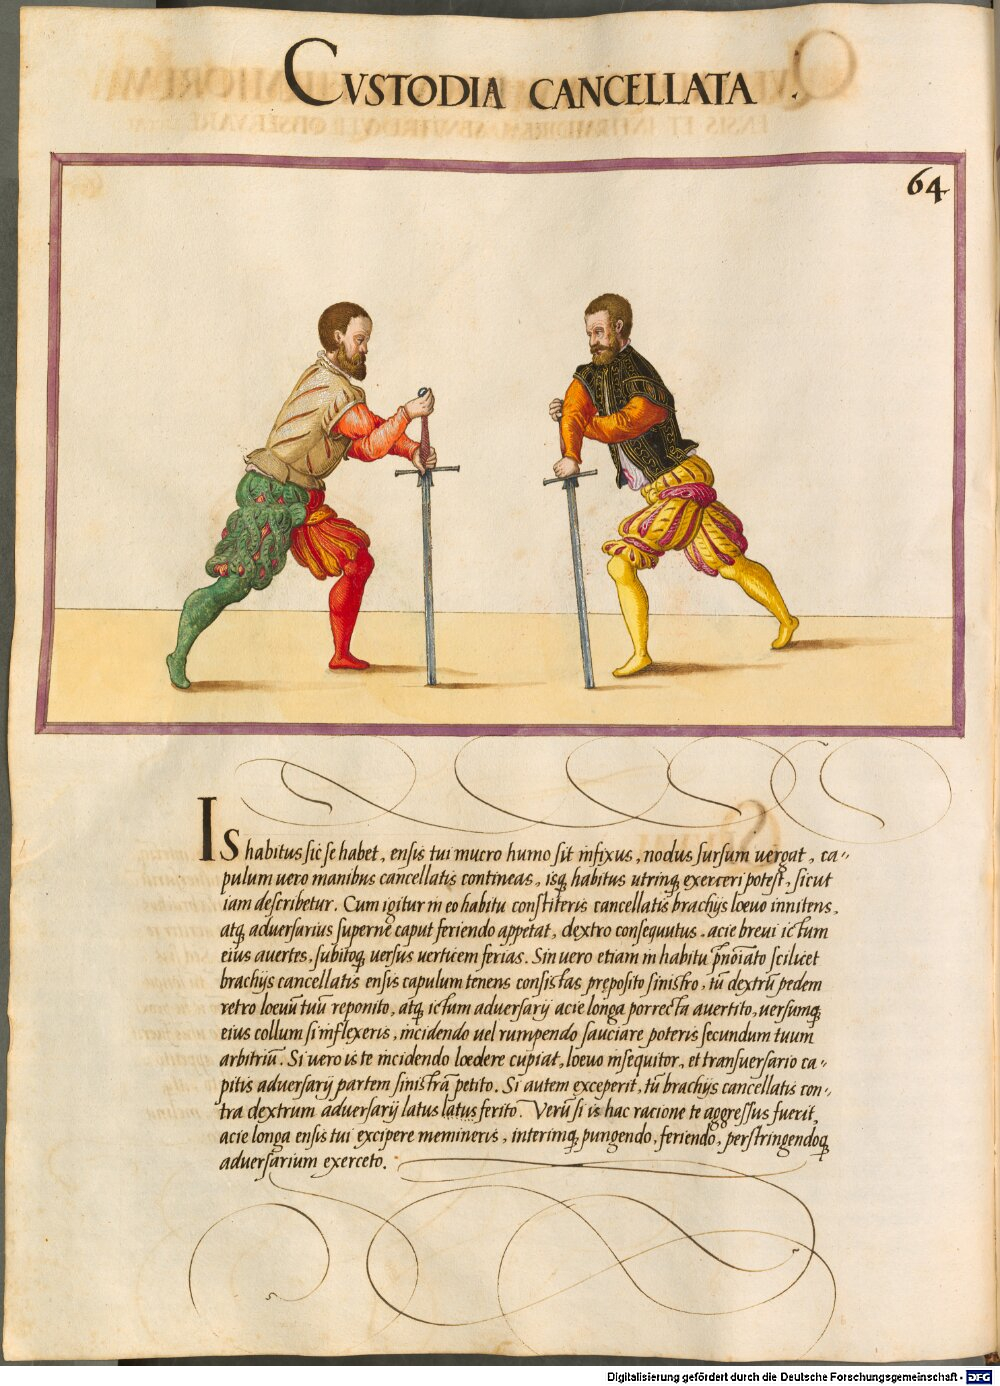 CVSTODIA CANCELLATA.
64
IS habitus sic se habet, ensis tui mucro humo sit infixus, nodus sursum uergat, ca-
pulum uero manibus cancellatis contineas, isq; habitus utrinq; exerceri potest, sicut
iam describetur. Cum igitur in eo habitu constiteris cancellatis brachijs loeuo innitens,
atq; aduersarius superne caput feriendo appetat, dextro consequutus, acie breui ictum
eius auertes, subitoq; uersus uerticem ferias. Sin uero etiam in habitu prnoiato scilicet
brachijs cancellatis ensis capulum tenens consistas preposito sinistro, tu dextru pedem
retro loeuu tuu reponito, atq; ictum aduersarij acie longa porrecta auertito, uersumq;
eius collum si inflexeris, incidendo uel rumpendo sauciare poteris secundum tuum
arbitriu. Si uero is te incidendo loedere cupiat, loeuo insequitor, et transuersario ca-
pitis aduersarij partem sinistra petito. Si autem exceperit, tu brachijs cancellatis con-
tra dextrum aduersarij latus latus ferito. Veru si is hac racione te aggressus fuerit,
acie longa ensis tui excipere memineris, interimq; pungendo, feriendo, perstringendoq;
aduersarium exerceto.
Digitalisierung gefördert durch die Deutsche Forschungsgemeinschaft - DFG